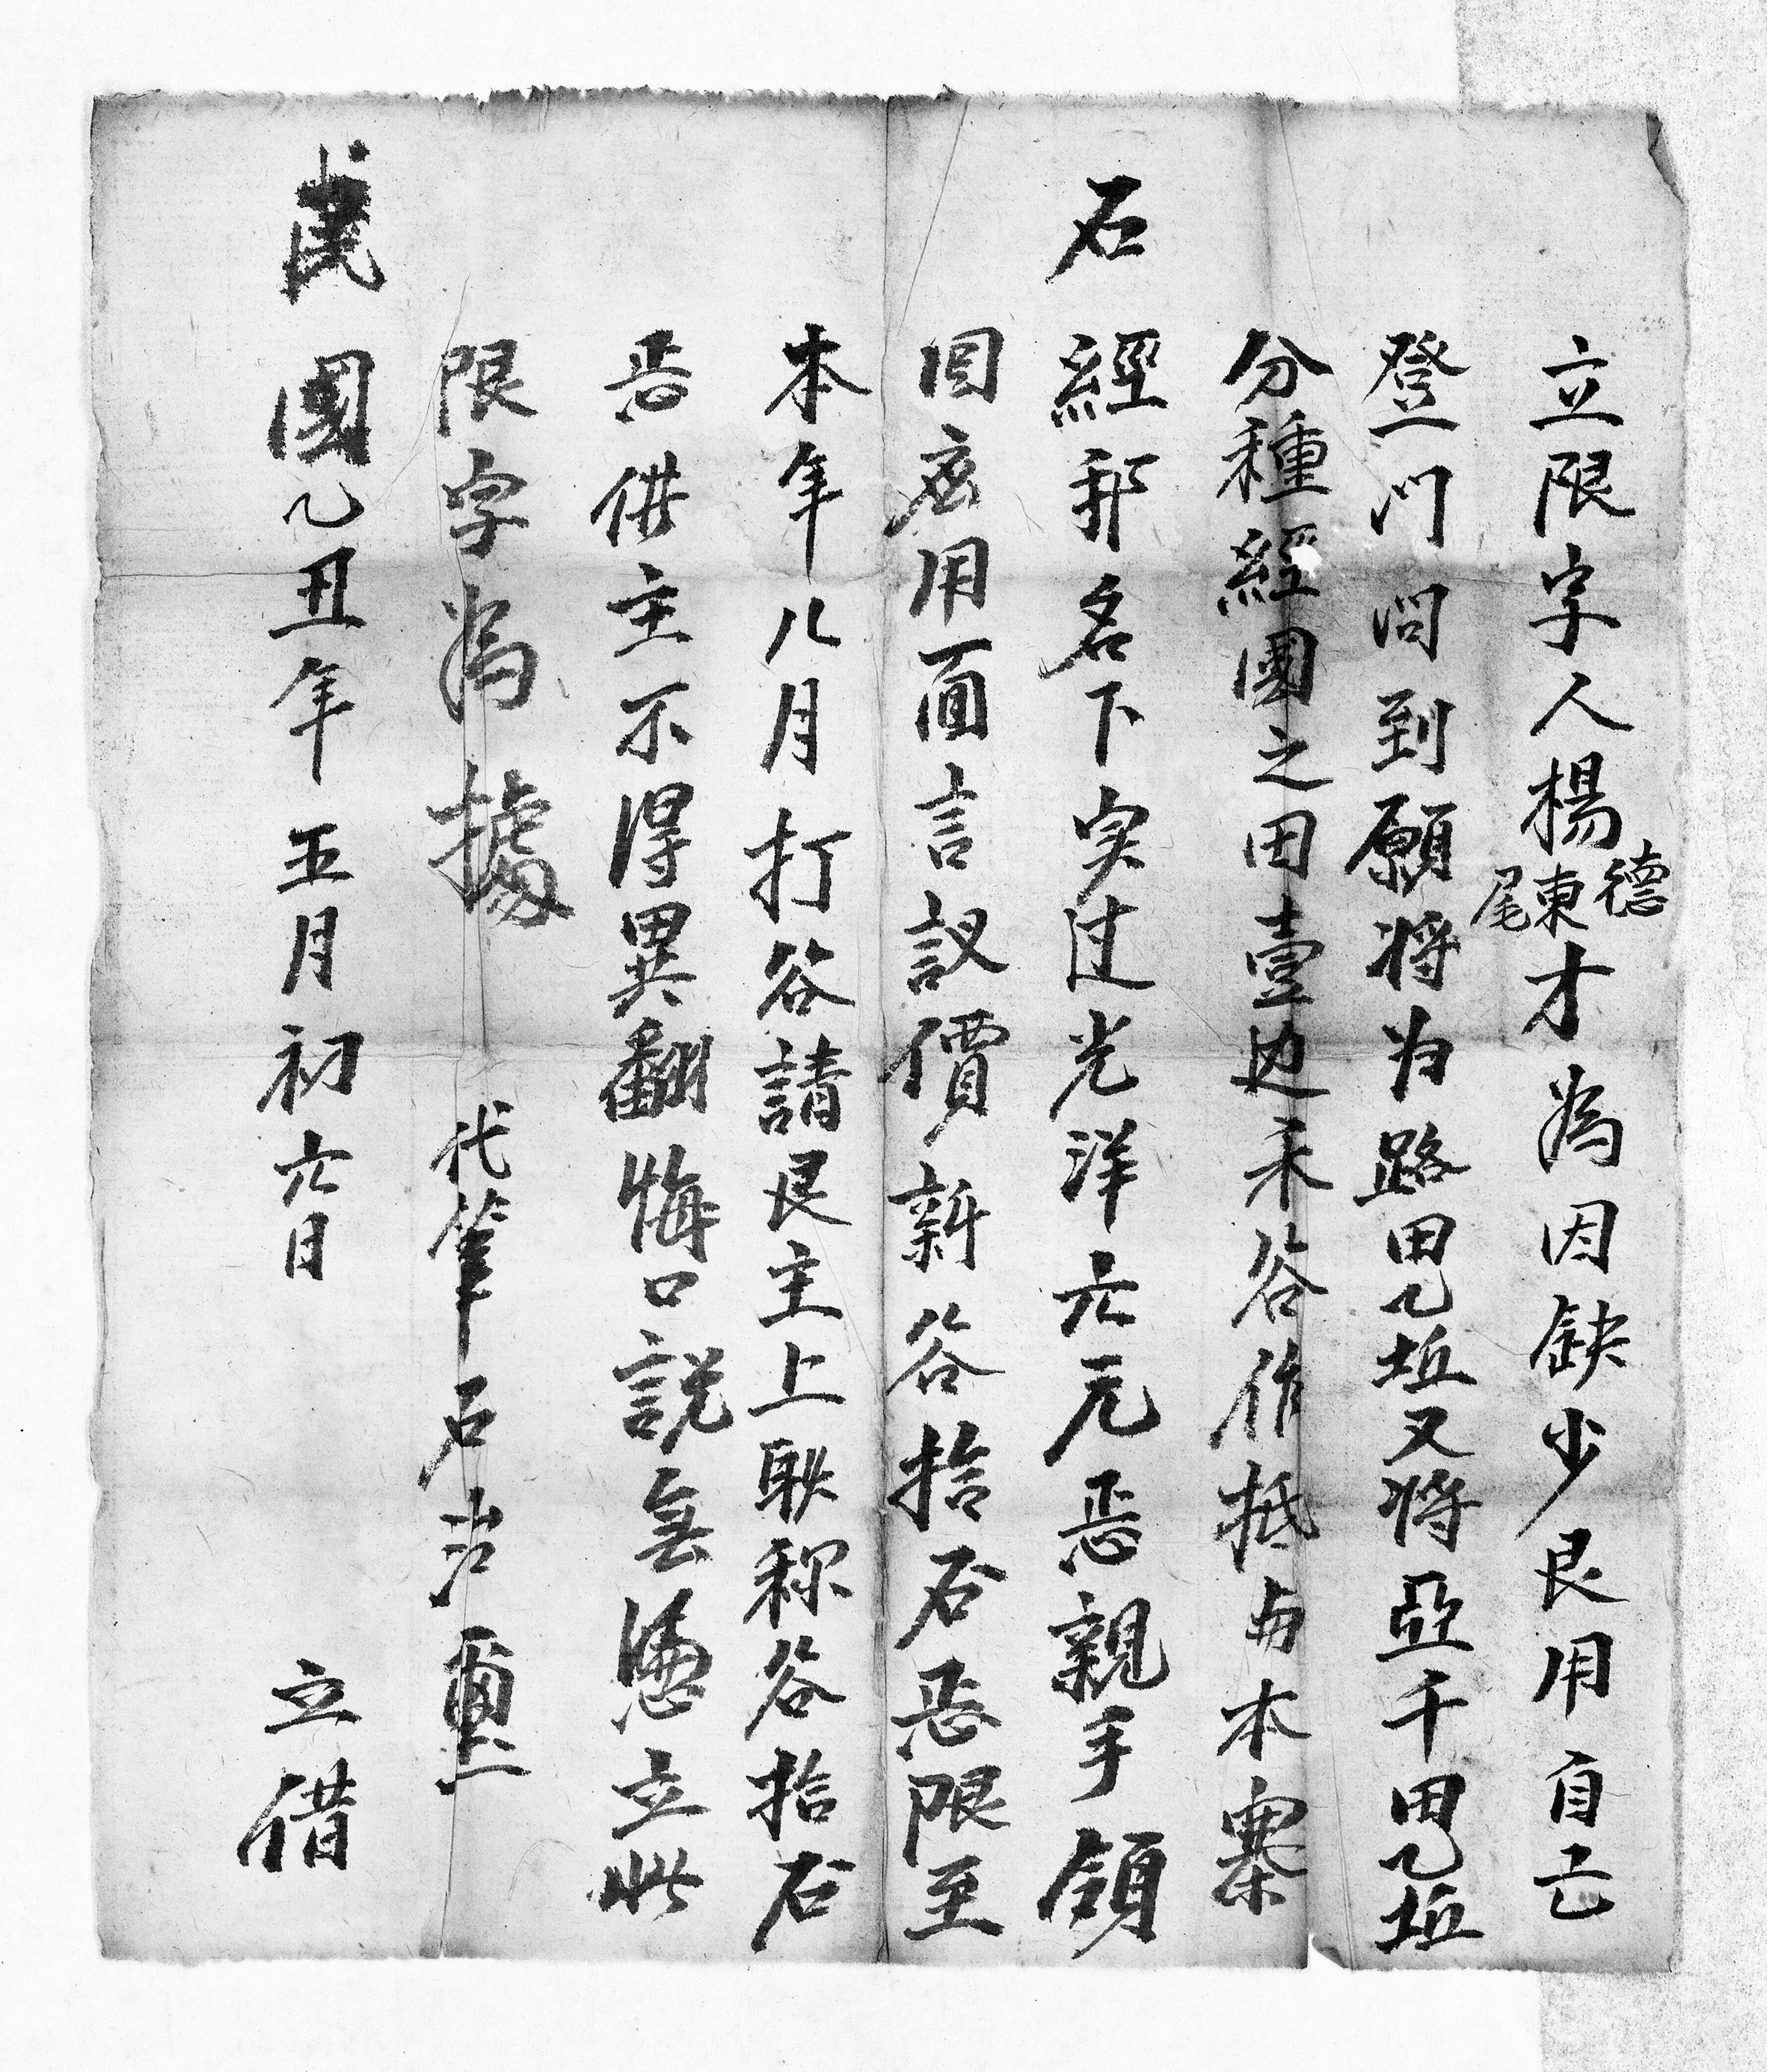 立限字人楊德東尾才為因缺少艮用自己
登門问到願将为路田乙坵又将亞千田乙坵
分種經國之田壹边禾谷作抵与本寨
石經邦名下实过光洋六元恶親手領
回应用面言議價新谷拾石恶限至
本年八月打谷請艮主上耿称谷拾石
恶借主不得異翻悔口說無憑立此
限字為據
代筆石治璽
民國乙丑年五月初六日 立借